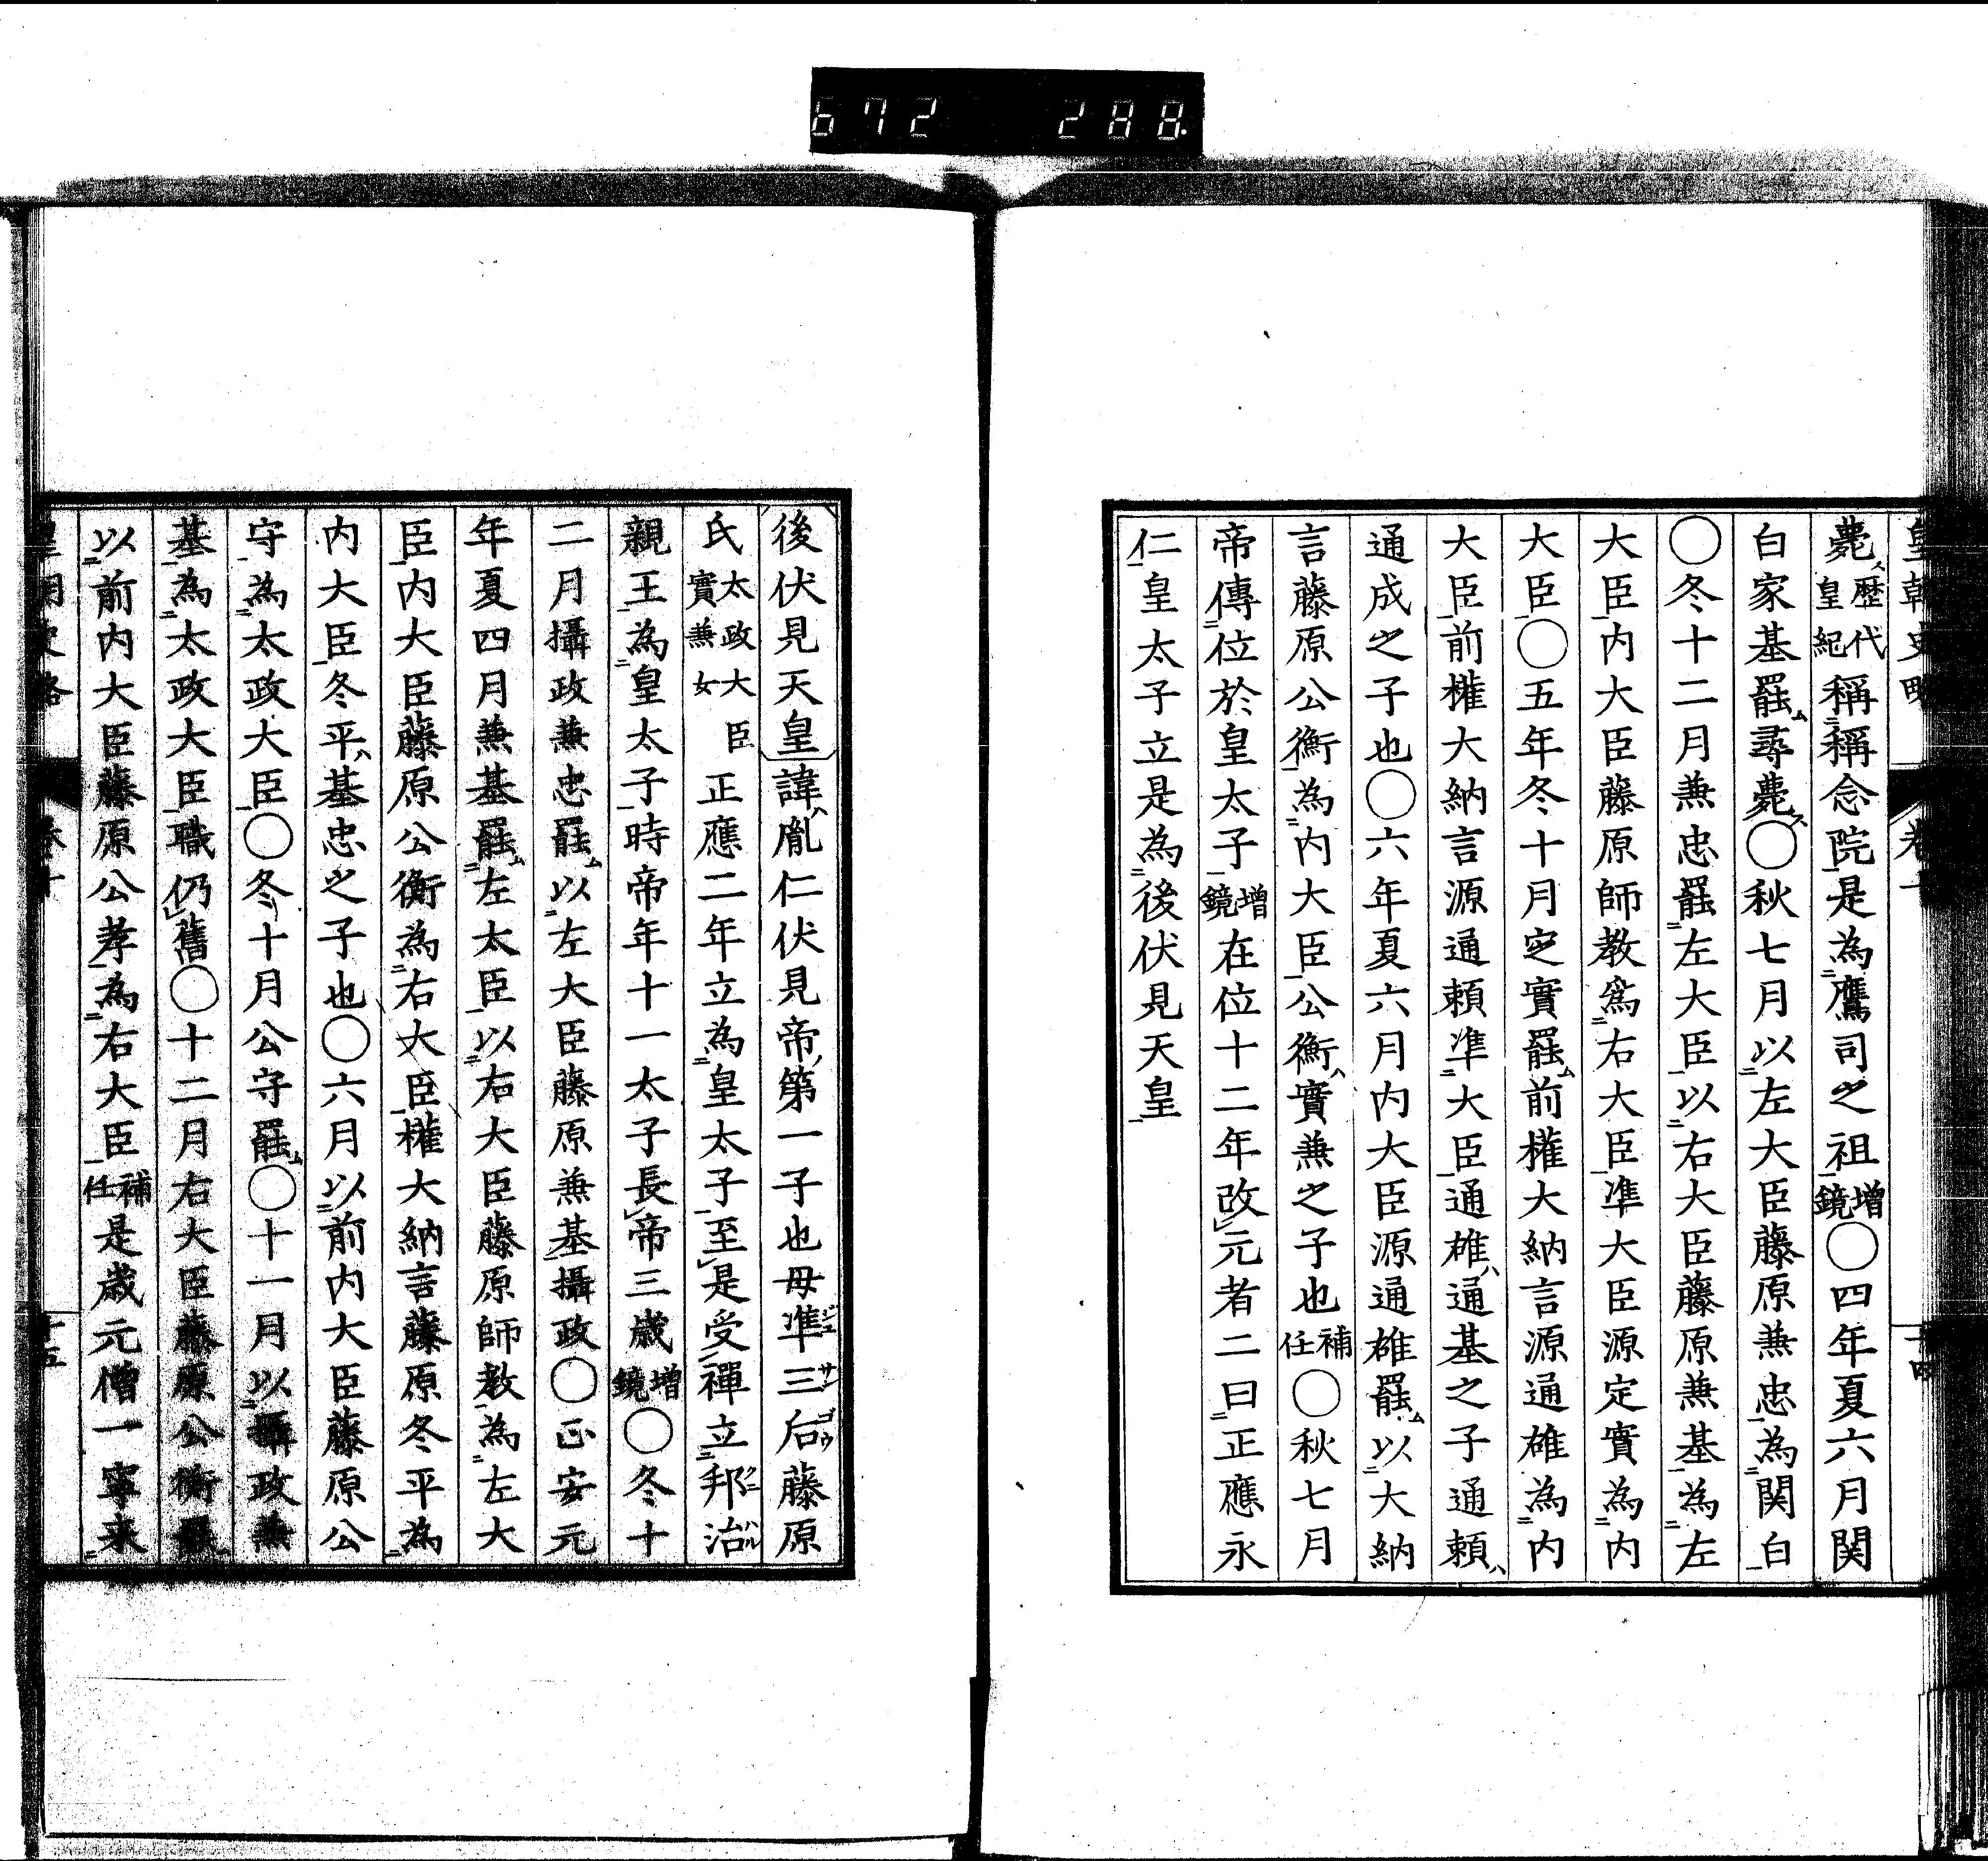 672 288
皇朝史略 卷十 十四
薨歷代皇紀稱稱念院是為鷹司之祖增鏡〇四年夏六月関
白家基罷尋薨〇秋七月以左大臣藤原兼忠為関白
〇冬十二月兼忠罷左大臣以右大臣藤原兼基為左
大臣內大臣藤原師教爲右大臣準大臣源定實為內
大臣〇五年冬十月定實罷前權大納言源通雄為內
大臣前權大納言源通賴準大臣通雄通基之子通賴
通成之子也〇六年夏六月內大臣源通雄罷以大納
言藤原公衡為內大臣公衡實兼之子也補任〇秋七月
帝傳位於皇太子增鏡在位十二年改元者二曰正應永
仁皇太子立是為後伏見天皇
後伏見天皇諱胤仁伏見帝第一子也母準三后藤原
氏太政大臣實兼女正應二年立為皇太子至是受禪立邦治
親王為皇太子時帝年十一太子長帝三歲增鏡〇冬十
二月攝政兼忠罷以左大臣藤原兼基攝政〇正安元
年夏四月兼基罷左太臣以右大臣藤原師教為左大
臣內大臣藤原公衡為右大臣權大納言藤原冬平為
內大臣冬平基忠之子也〇六月以前內大臣藤原公
守為太政大臣〇冬十月公守罷〇十一月以攝政兼
基為太政大臣職仍舊〇十二月右大臣藤原公衡罷
以前內大臣藤原公孝為右大臣補任是歲元僧一寧来
皇朝史略 卷十 十五